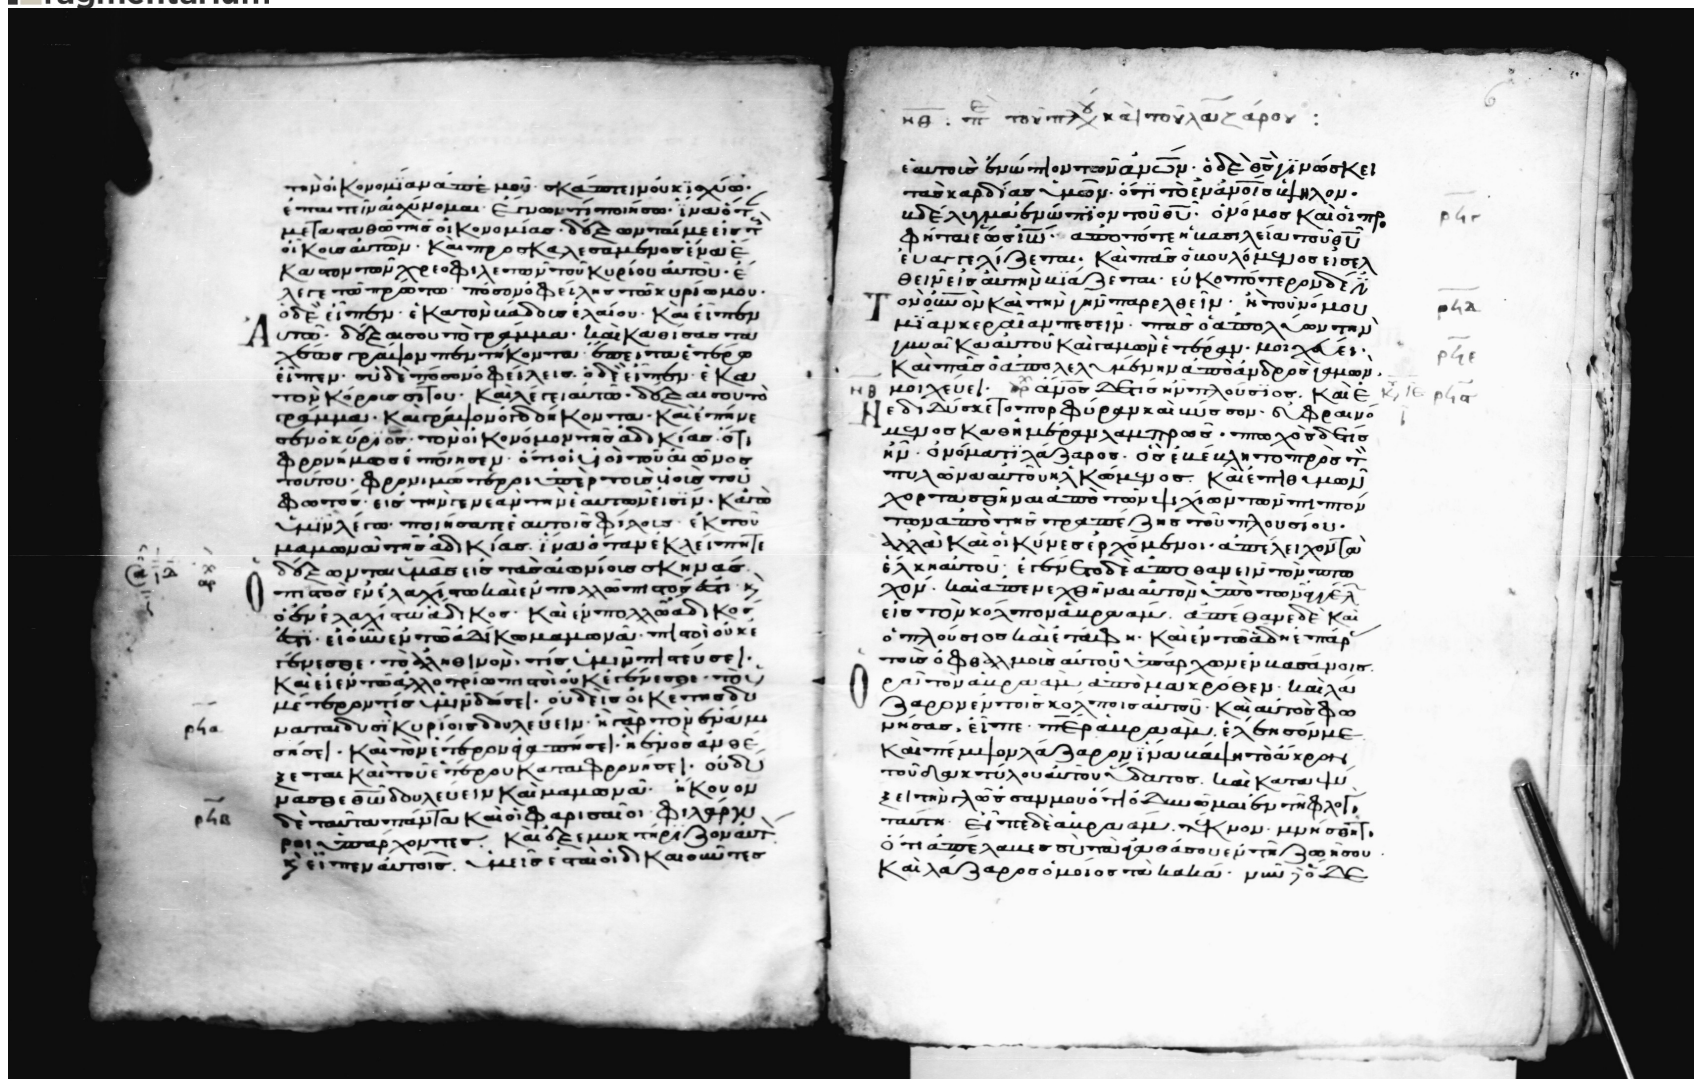 τὴν οἰκονομίαν ἀπ' ἐμοῦ· σκάπτειν οὐκ ἰσχύω·
ἐπαιτεῖν αἰσχύνομαι· ἔγνων τί ποιήσω· ἵνα ὅτ
μετασταθῶ τῆς οἰκονομίας· δέξωνταί με εἰς τ
οἴκους αὐτῶν· Καὶ προσκαλεσάμενος ἕνα ἕ
καστον τῶν χρεοφιλετῶν τοῦ κυρίου αὐτοῦ· ἔ
λεγε τῶ πρώτω· πόσον ὀφείλης τῶ κυρίω μου·
ὁ δὲ εἶπεν· ἑκατὸν βάδους ἐλαίου· Καὶ εἶπεν
Αυτῶ· δέξαι σου τὸ γράμμα· καὶ καθίσας τα
χέως γράψον πεντήκοντα· ἔπειτα ἑτέρω
εἶπεν· σὺ δὲ πόσον ὀφείλεις· ὁ δὲ εἶπεν· ἑκα
τὸν κόρους σίτου· Καὶ λέγει αὐτῶ· δέξαι σου τὸ
γράμμα· Καὶ γράψον ὀγδοήκοντα· Καὶ ἐπήνε
σεν ὁ κύριος· τὸν οἰκονόμον τῆς ἀδικίας· ὅτι
φρονήμως ἐποίησεν· ὅτι οἱ υἱοὶ τοῦ αἰῶνος
τούτου· φρονιμώτεροι ὑπὲρ τοὺς υἱοὺς τοῦ
φωτός· εἰς τὴν γενεὰν τὴν ἑαυτῶν εἰσίν· Κἀγὼ
ὑμῖν λέγω· ποιήσατε ἑαυτοῖς φίλους· ἐκ τοῦ
μαμωνᾶ τῆς ἀδικίας· ἵνα ὅταν ἐκλείπητε
δέξωνται ὑμᾶς εἰς τὰς αἰωνίους σκηνάς·
Ὁ πιστὸς ἐν ἐλαχίστω καὶ ἐν πολλῶ πιστός ἐστι· κ
ὁ ἐν ἐλαχίστω ἄδικος· Καὶ ἐν πολλῶ ἄδικός
ἐστι· εἰ οὖν ἐν τῶ ἀδίκω μαμωνᾶ· πιστοὶ οὐκ ἐ
γένεσθε· τὸ ἀληθινὸν τίς ὑμῖν πιστεύσει·
Καὶ εἰ ἐν τῶ ἀλλοτρίω πιστοὶ οὐκ ἐγένεσθε· τὸ ὑ
μέτερον τίς ὑμῖν δώσει· οὐδεὶς οἰκέτης δύ
ναται δυσὶ κυρίοις δουλεύειν· ἢ γὰρ τὸν ἕνα μι
σήσει· Καὶ τὸν ἕτερον ἀγαπήσει· ἢ ἑνὸς ἀνθέ
ξεται καὶ τοῦ ἑτέρου καταφρονήσει· οὐ δύ
νασθε θῶ δουλεύειν καὶ μαμωνᾶ· ἤκουον
δὲ ταῦτα πάντα καὶ οἱ φαρισαῖοι φιλάργυ
ροι ὑπάρχοντες· Καὶ ἐξεμυκτήριζον αὐτ
κ εἶπεν αὐτοῖς· ὑμεῖς ἐστὲ οἱ δικαιοῦντες
ρϟα
ρϟβ
6
νθ· π τοῦ πλ καὶ τοῦ λαζάρου :
ἑαυτοὺς ἐνώπιον τῶν ἀνων· ὁ δὲ θς γινώσκει
τὰς καρδίας ὑμῶν· ὅτι τὸ ἐν ἀνοις ὑψηλον·
βδέλυγμα ἐνώπιον τοῦ θυ· ὁ νόμος καὶ οἱ προ
φῆται ἕως ἰω· ἀπὸ τότε ἡ βασιλεία τοῦ θυ
εὐαγγελίζεται· Καὶ πᾶς ὁ βουλόμενος εἰσελ
θεῖν εἰς αὐτὴν βιάζεται· εὐκοπότερον δέ ἐστι
Τὸν οὐνον καὶ τὴν γῆν παρελθεῖν· ἢ τοῦ νόμου
μίαν κεραίαν πεσεῖν· πᾶς ὁ ἀπολύων τὴν
γυναῖκα αὐτοῦ καὶ γαμῶν ἑτέραν· μοιχεύει·
Καὶ πᾶς ὁ ἀπολελυμένην ἀπὸ ἀνδρὸς γαμῶν·
μοιχεύει· ἀνος δέ τις ἦν πλούσιος· Καὶ ἐ
Νεδιδύσκετο πορφύραν καὶ βύσσον· εὐφραινό
μενος καθημέραν λαμπρῶς· πτωχὸς δέ τις
ἦν· ὀνόματι λάζαρος· ὃς ἐβέβλητο πρὸς τ
πυλῶνα αὐτοῦ ἡλκωμένος· Καὶ ἐπιθυμῶν
χορτασθῆναι ἀπὸ τῶν ψιχίων τῶν πιπτόν
των ἀπὸ τῆς τραπέζης τοῦ πλουσίου·
ἀλλὰ καὶ οἱ κύνες ἐρχόμενοι· ἀπέλειχον τὰ
ἕλκη αὐτοῦ· ἐγένετο δὲ ἀποθανεῖν τὸν πτω
χόν· καὶ ἀπενεχθῆναι αὐτὸν ὑπὸ τῶν ἀγγέλ
εἰς τὸν κόλπον ἀβραάμ· ἀπέθανε δὲ καὶ
ὁ πλούσιος καὶ ἐτάφη· Καὶ ἐν τῶ ἅδη ἐπάρ
τοὺς ὀφθαλμοὺς αὐτοῦ ὑπάρχων ἐν βασάνοις·
Ὁρᾶ τὸν ἀβραὰμ ἀπὸ μακρόθεν· καὶ λά
ζαρον ἐν τοῖς κόλποις αὐτοῦ· Καὶ αὐτὸς φω
νήσας· εἶπε· περ ἀβραάμ· ἐλέησόν με
καὶ πέμψον λάζαρον ἵνα βάψη τὸ ἄκρον
τοῦ δακτύλου αὐτοῦ ὕδατος· καὶ καταψύ
ξει τὴν γλῶσσαν μου ὅτι ὀδυνῶμαι ἐν τῆ φλογὶ
ταύτη· Εἶπε δὲ ἀβραάμ· τέκνον· μνήσθητι
ὅτι ἀπέλαβες σὺ τὰ ἀγαθά σου ἐν τῆ ζωῆ σου·
Καὶ λάζαρος ὁμοίως τὰ κακά· νῦν ὁ δε
ρϟγ
ρϟδ
ρϟε
νθ